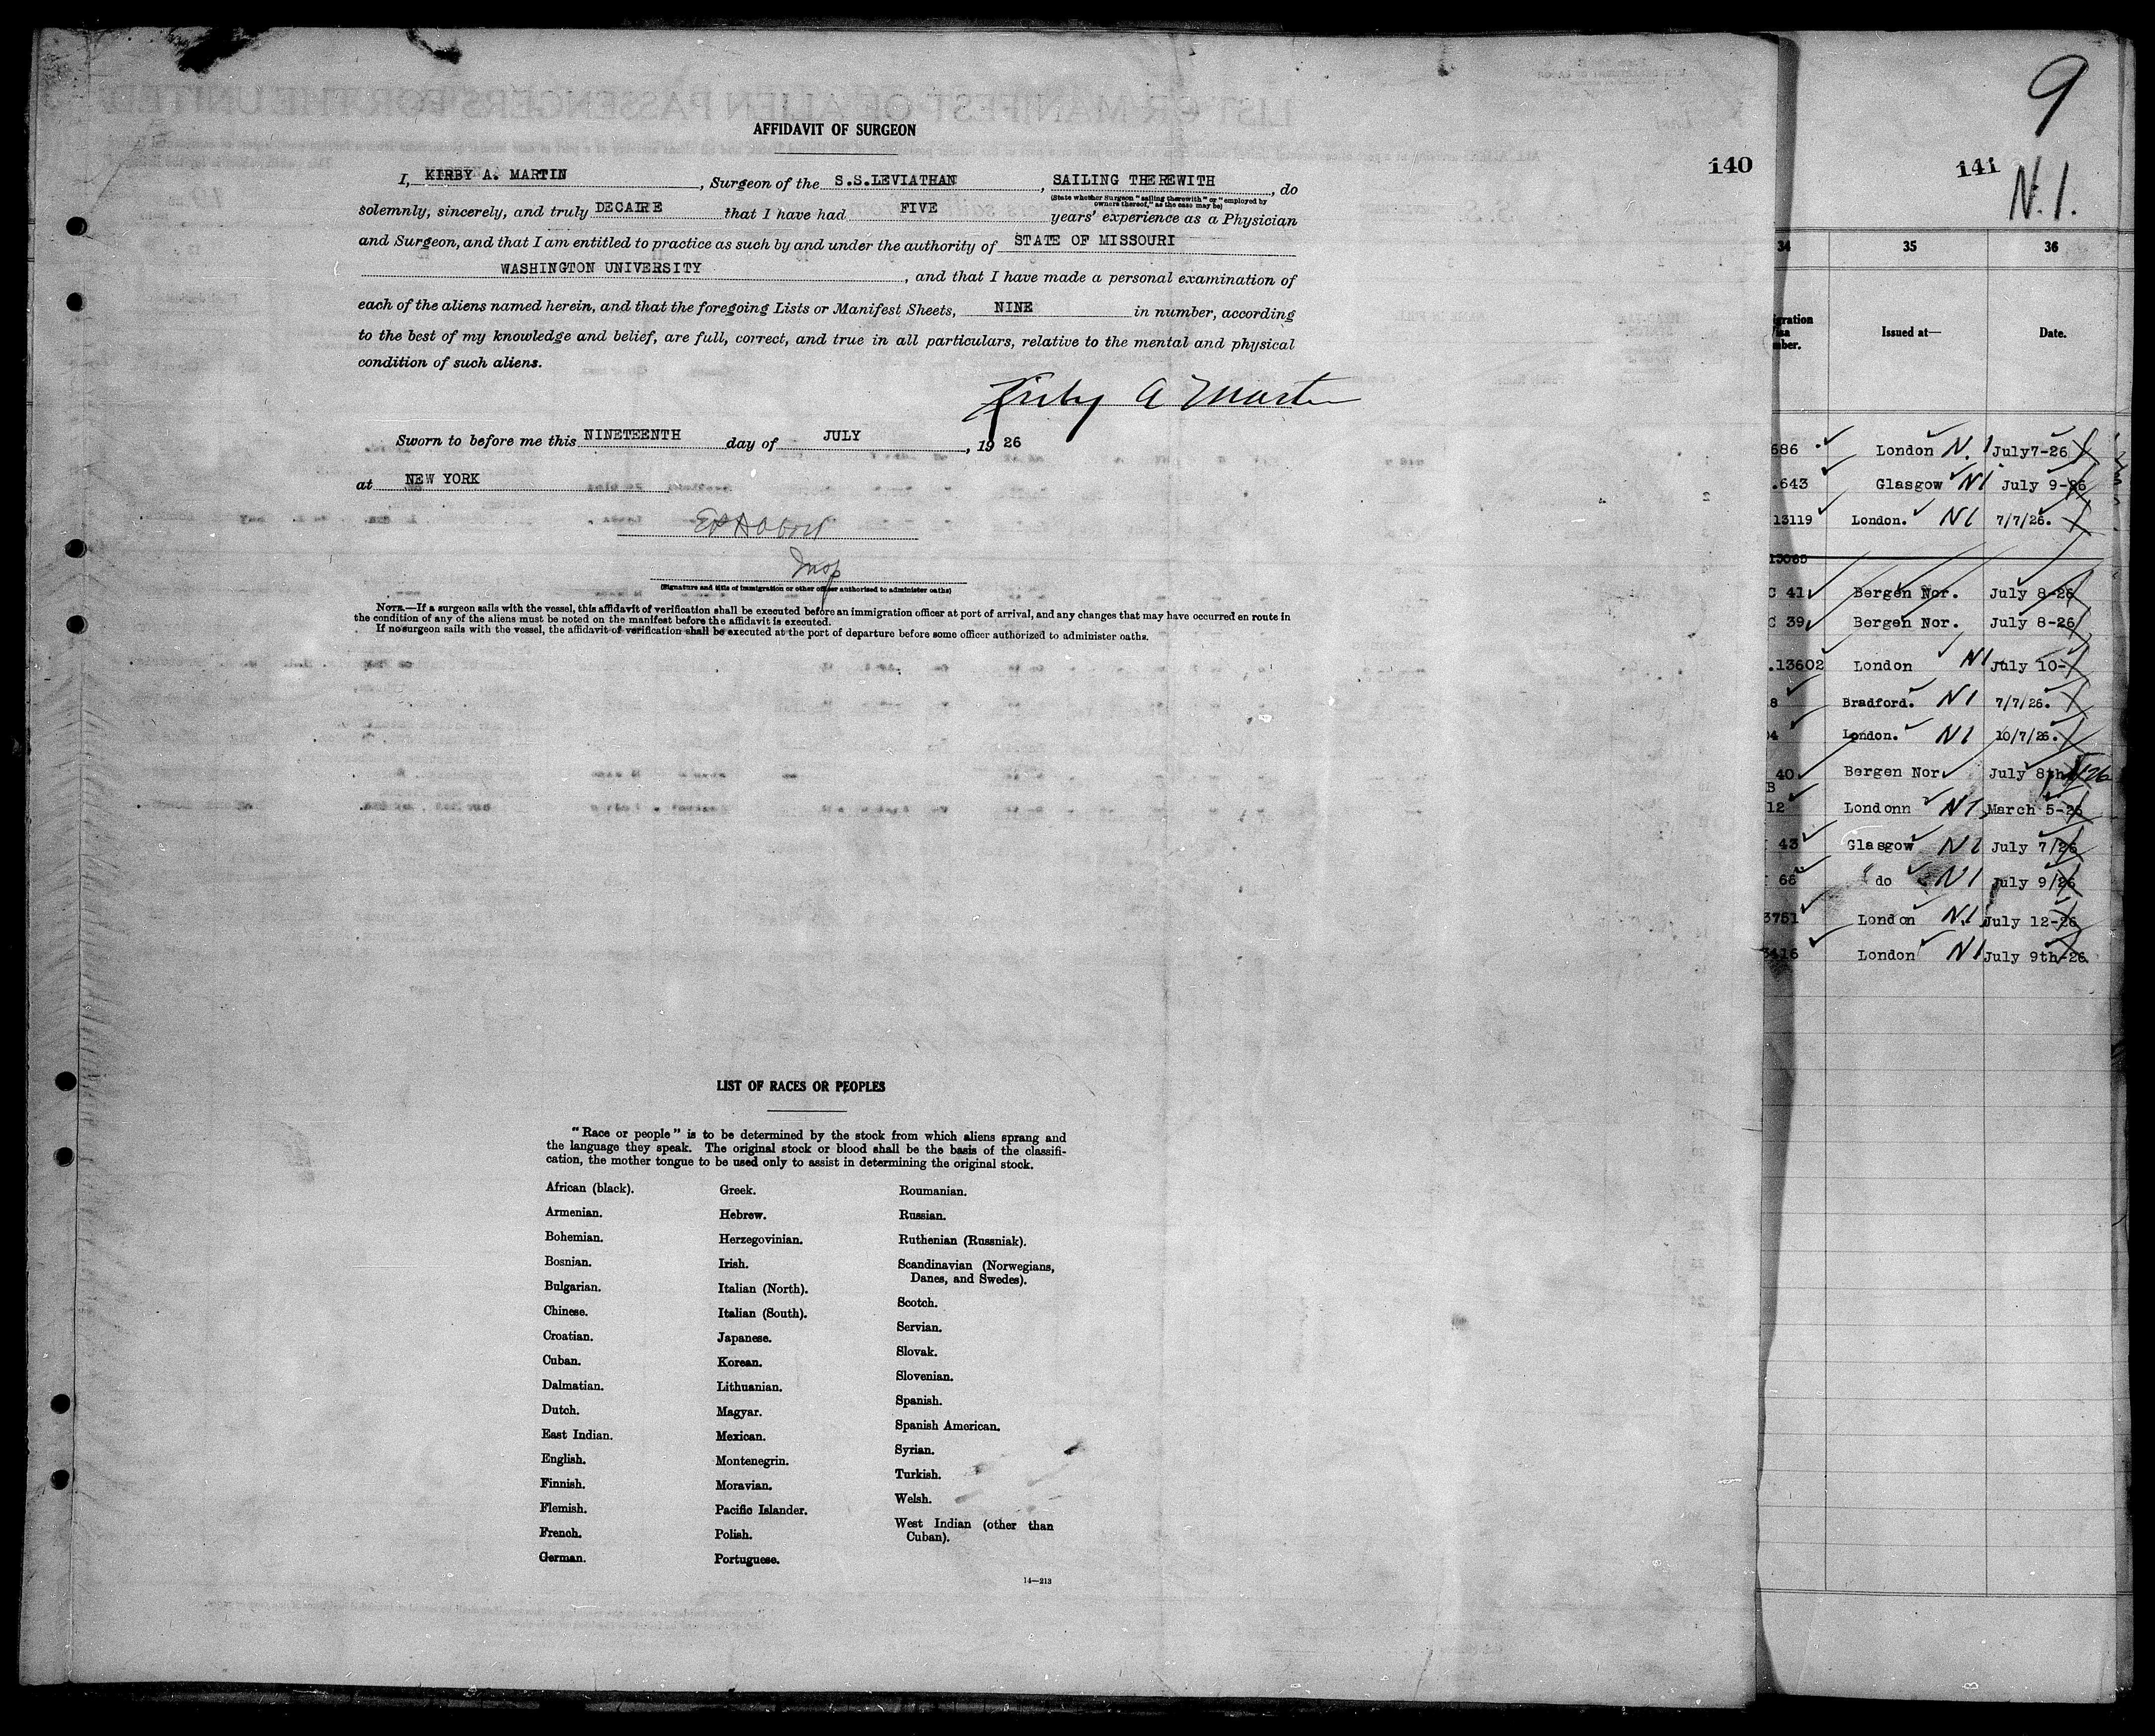 AFFIDAVIT OF SURGEON
I, KIRBY A. MARTIN, Surgeon of the S.S.LEVIATHAN, SAILING THEREWITH, do
(State whether Surgeon "sailing therewith" or "employed by owners thereof," as the case may be)
solemnly, sincerely, and truly DECALRE that I have had FIVE years' experience as a Physician
and Surgeon, and that I am entitled to practice as such by and under the authority of STATE OF MISSOURI
WASHINGTON UNIVERSITY, and that I have made a personal examination of
each of the aliens named herein, and that the foregoing Lists or Manifest Sheets, NINE in number, according
to the best of my knowledge and belief, are full, correct, and true in all particulars, relative to the mental and physical
condition of such aliens.
Kirby A Martin
Sworn to before me this NINETEENTH day of JULY, 19 26
at NEW YORK
Insp
(Signature and title of immigration or other officer authorized to administer oaths)
NOTE.—If a surgeon sails with the vessel, this affidavit of verification shall be executed before an immigration officer at port of arrival, and any changes that may have occurred en route in
the condition of any of the aliens must be noted on the manifest before the affidavit is executed.
If no surgeon sails with the vessel, the affidavit of verification shall be executed at the port of departure before some officer authorized to administer oaths.
LIST OF RACES OR PEOPLES
"Race or people" is to be determined by the stock from which aliens sprang and
the language they speak. The original stock or blood shall be the basis of the classifi-
cation, the mother tongue to be used only to assist in determining the original stock.
African (black).
Armenian.
Bohemian.
Bosnian.
Bulgarian.
Chinese.
Croatian.
Cuban.
Dalmatian.
Dutch.
East Indian.
English.
Finnish.
Flemish.
French.
German.
Greek.
Hebrew.
Herzegovinian.
Irish.
Italian (North).
Italian (South).
Japanese.
Korean.
Lithuanian.
Magyar.
Mexican.
Montenegrin.
Moravian.
Pacific Islander.
Polish.
Portuguese.
Roumanian.
Russian.
Ruthenian (Russniak).
Scandinavian (Norwegians,
Danes, and Swedes).
Scotch.
Servian.
Slovak.
Slovenian.
Spanish.
Spanish American.
Syrian.
Turkish.
Welsh.
West Indian (other than
Cuban).
14—213
140
9
141
N.1.
34 35 36
Issued at— Date.
686 London N.1 July 7-26
.643 Glasgow N1 July 9-26
13119 London. N1 7/7/26.
13065
C 41 Bergen Nor. July 8-26
C 39 Bergen Nor. July 8-26
.13602 London N1 July 10-
8 Bradford. N1 7/7/26.
4 London. N1 10/7/26.
40 Bergen Nor. July 8th 26
B
12 Londonn N1 March 5-26
43 Glasgow N1 July 7/26
66 " do N1 July 9/26
3751 London N.1 July 12-26
3416 London N1 July 9th-26